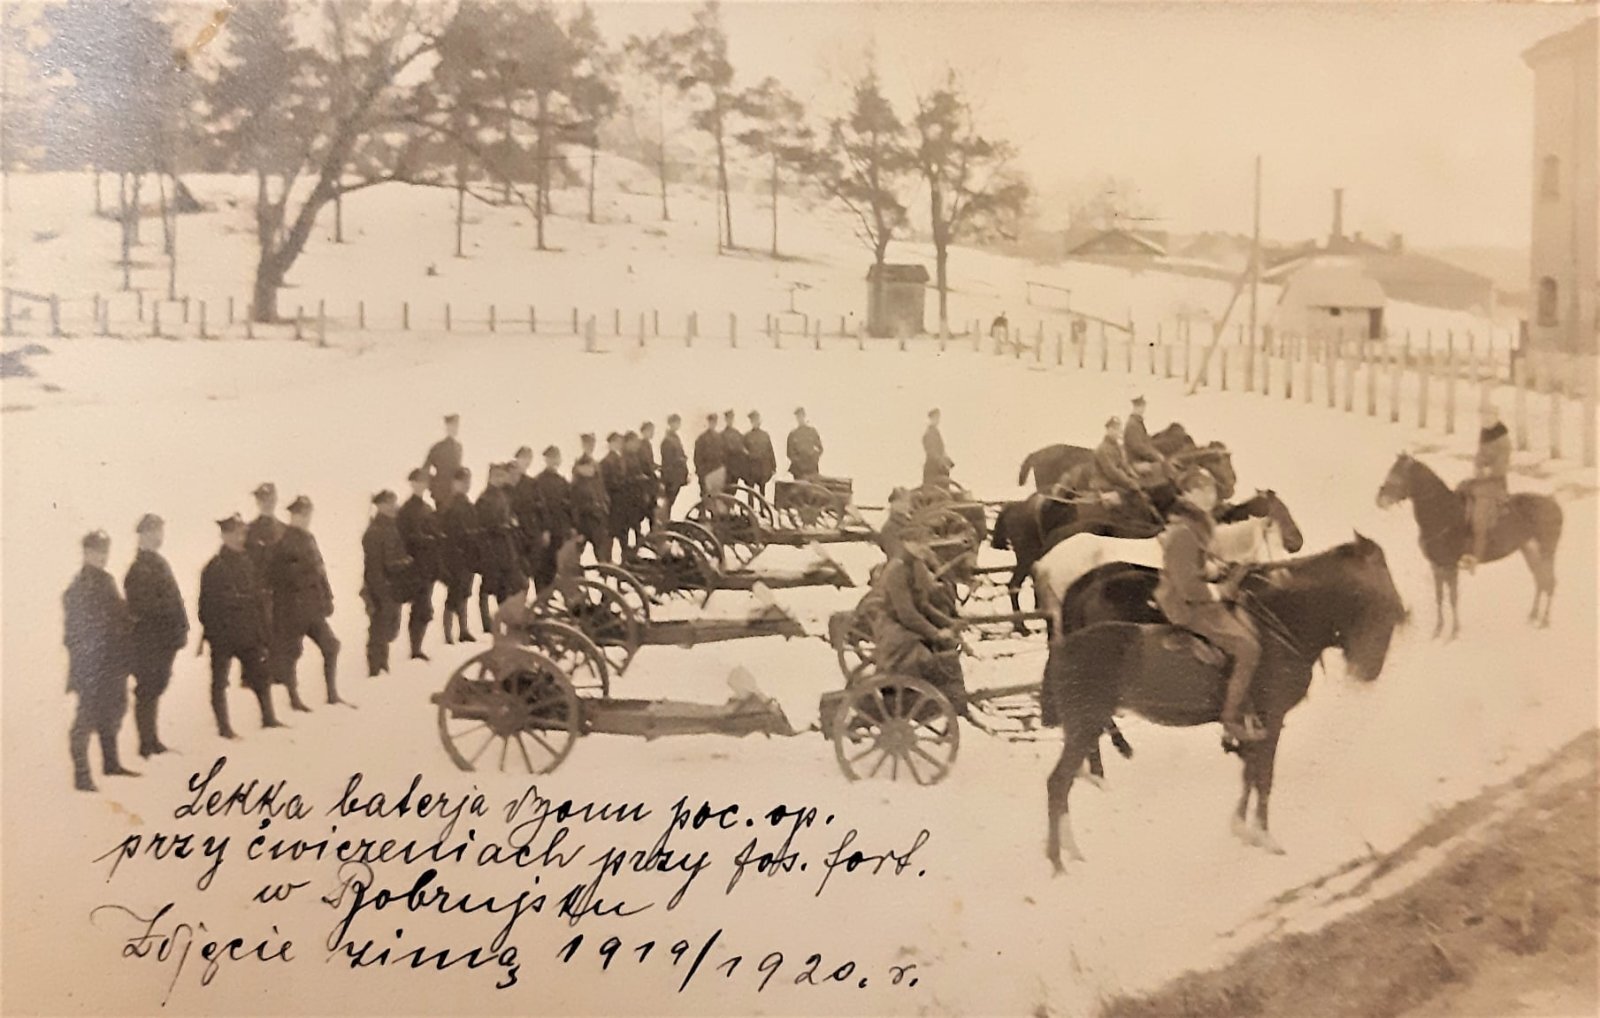 Lekka baterja dyonu poc. op.
przy ćwiczeniach przy fos. fort.
w Bobrujsku
Zdjęcie zimą 1919/1920. r.